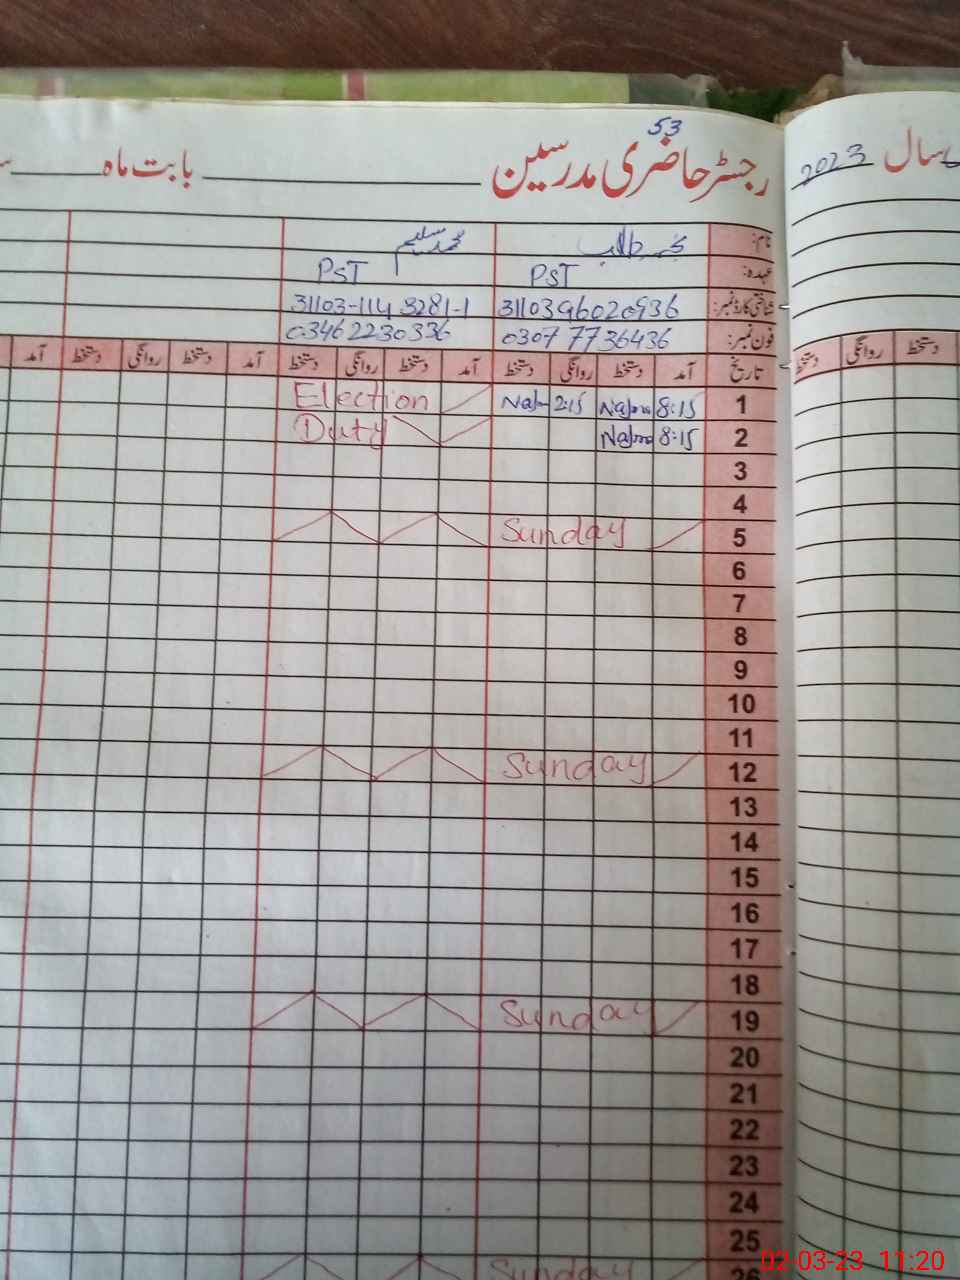 53
رجسٹر حاضری مدرسین بابت ماہ
سال 2023
نام: محمد سلیم
عہدہ: PST PST
شناختی کارڈ نمبر: 3110396020936 31103-1143281-1
فون نمبر: 03077736436 03462230336
تاریخ آمد دستخط روانگی دستخط آمد دستخط روانگی دستخط آمد دستخط روانگی دستخط آمد
دستخط روانگی دستخط
1 8:15 2:15 Election
2 8:15 Duty
3
4
5 Sunday
6
7
8
9
10
11
12 Sunday
13
14
15
16
17
18
19 Sunday
20
21
22
23
24
25
26 Sunday
02-03-23 11:20